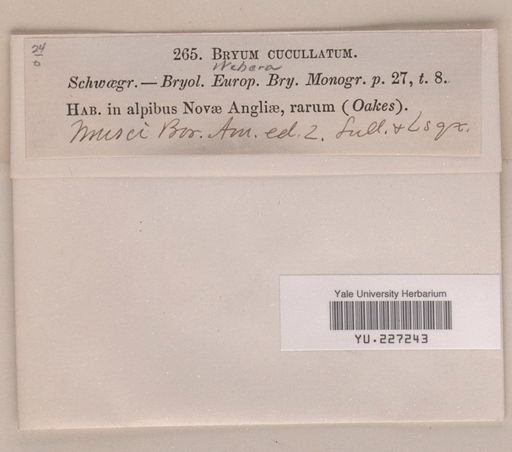 24
0
265. BRYUM CUCULLATUM.
Webera
Schwægr. — Bryol. Europ. Bry. Monogr. p. 27, t. 8.
HAB. in alpibus Novæ Angliæ, rarum (Oakes).
Musci Bor. Am. ed. 2. Sull. & Lsqx.
Yale University Herbarium
YU.227243